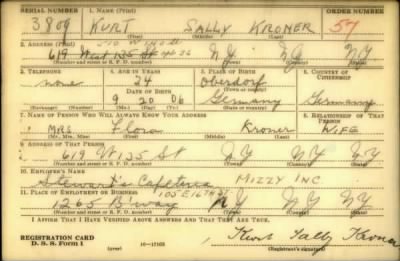 SERIAL NUMBER
1. NAME (Print)
ORDER NUMBER
3809 KURT SALLY KRONER 57
(First) (Middle) (Last)
2. ADDRESS (Print)
619 West 135 St N.Y. N.Y. N.Y.
(Number and street or R. F. D. number) (Town) (County) (State)
3. TELEPHONE
4. AGE IN YEARS
5. PLACE OF BIRTH
6. COUNTRY OF CITIZENSHIP
none
Oberdorf
DATE OF BIRTH
(Town or county)
9 20 06
Germany
Germany
(Exchange) (Number) (Mo.) (Day) (Yr.) (State or country)
7. NAME OF PERSON WHO WILL ALWAYS KNOW YOUR ADDRESS
8. RELATIONSHIP OF THAT PERSON
MRS Flora Kroner WIFE
(Mr., Mrs., Miss) (First) (Middle) (Last)
9. ADDRESS OF THAT PERSON
619 W 135 St N.Y. N.Y. N.Y.
(Number and street or R. F. D. number) (Town) (County) (State)
10. EMPLOYER'S NAME
Stewart's Cafeteria MIZZY INC
11. PLACE OF EMPLOYMENT OR BUSINESS 105 E 16TH ST
1265 B'way N.Y. N.Y. N.Y.
(Number and street or R. F. D. number) (Town) (County) (State)
I AFFIRM THAT I HAVE VERIFIED ABOVE ANSWERS AND THAT THEY ARE TRUE.
REGISTRATION CARD
D. S. S. Form 1 (over) 16—17105
Kurt Sally Kroner
(Registrant's signature)